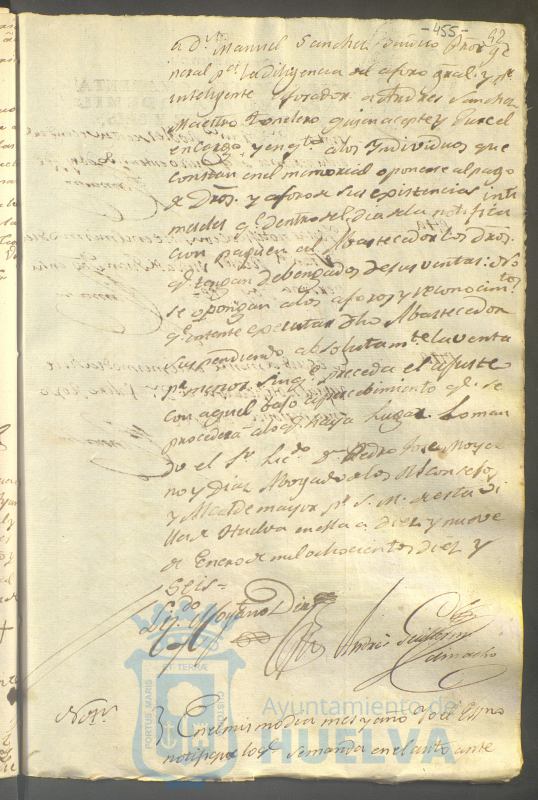 -455-
92
a Dn. Manuel Sanchez Sindico Pror. ge
neral pa. la diligencia del aforo gral. y pr.
inteligente aforador a Andres Sanchez
Maestro tonelero quien acepte y jure el
encargo y en qto. a los Individuos que
constan en el memorial oponerse al pago
de Dros. y aforo de sus existencias inti
meseles qe. dentro del dia de la notifica
cion paguen al Abastecedor los Dros.
qe. tengan debengados de sus ventas:
se opongan a los aforos y reconocimtos.
qe. intente executar dho Abastecedor
suspendiendo absolutamte. la venta
pr. menor sin qe. preceda el ajuste
con aquel bajo apercebimiento qe. se
procedera a lo qe. haya lugar. Lo man
do el Sr. Licdo. Dn. Pedro Jose Moya
no y Diaz Abogado de los Rs. Consejos
y Alcalde mayor pr. S. M. de esta Vi
lla de Huelva en ella a diez y nueve
de Enero de mil ochocientos diez y
seis=
Licdo. Moyano Diaz
Andres Guillermo
Camacho
Noton.
En el mismo dia mes y año yo el Essno
notifique lo qe. se manda en el auto ante
PORTUS MARIS
ET TERRÆ
CUSTODIA
Ayuntamiento de
HUELVA